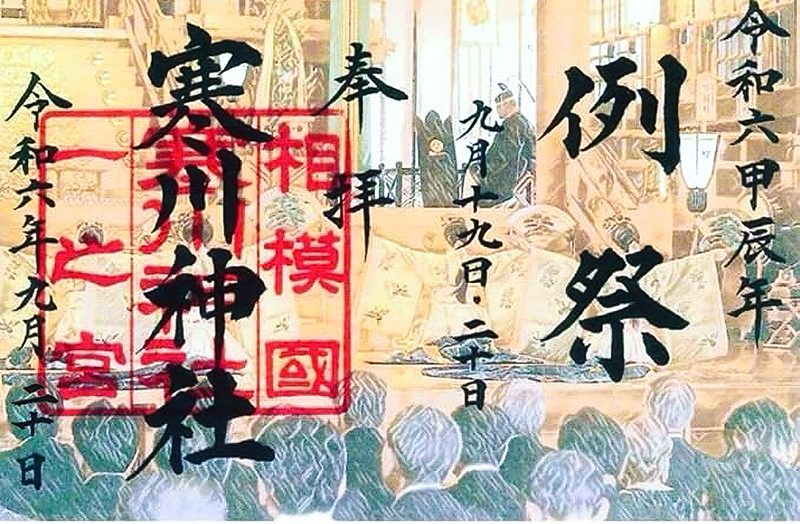 令和六甲辰年
例祭
九月十九日・二十日
奉拝
寒川神社
令和六年九月二十日
相模國
一之宮
寒川神社